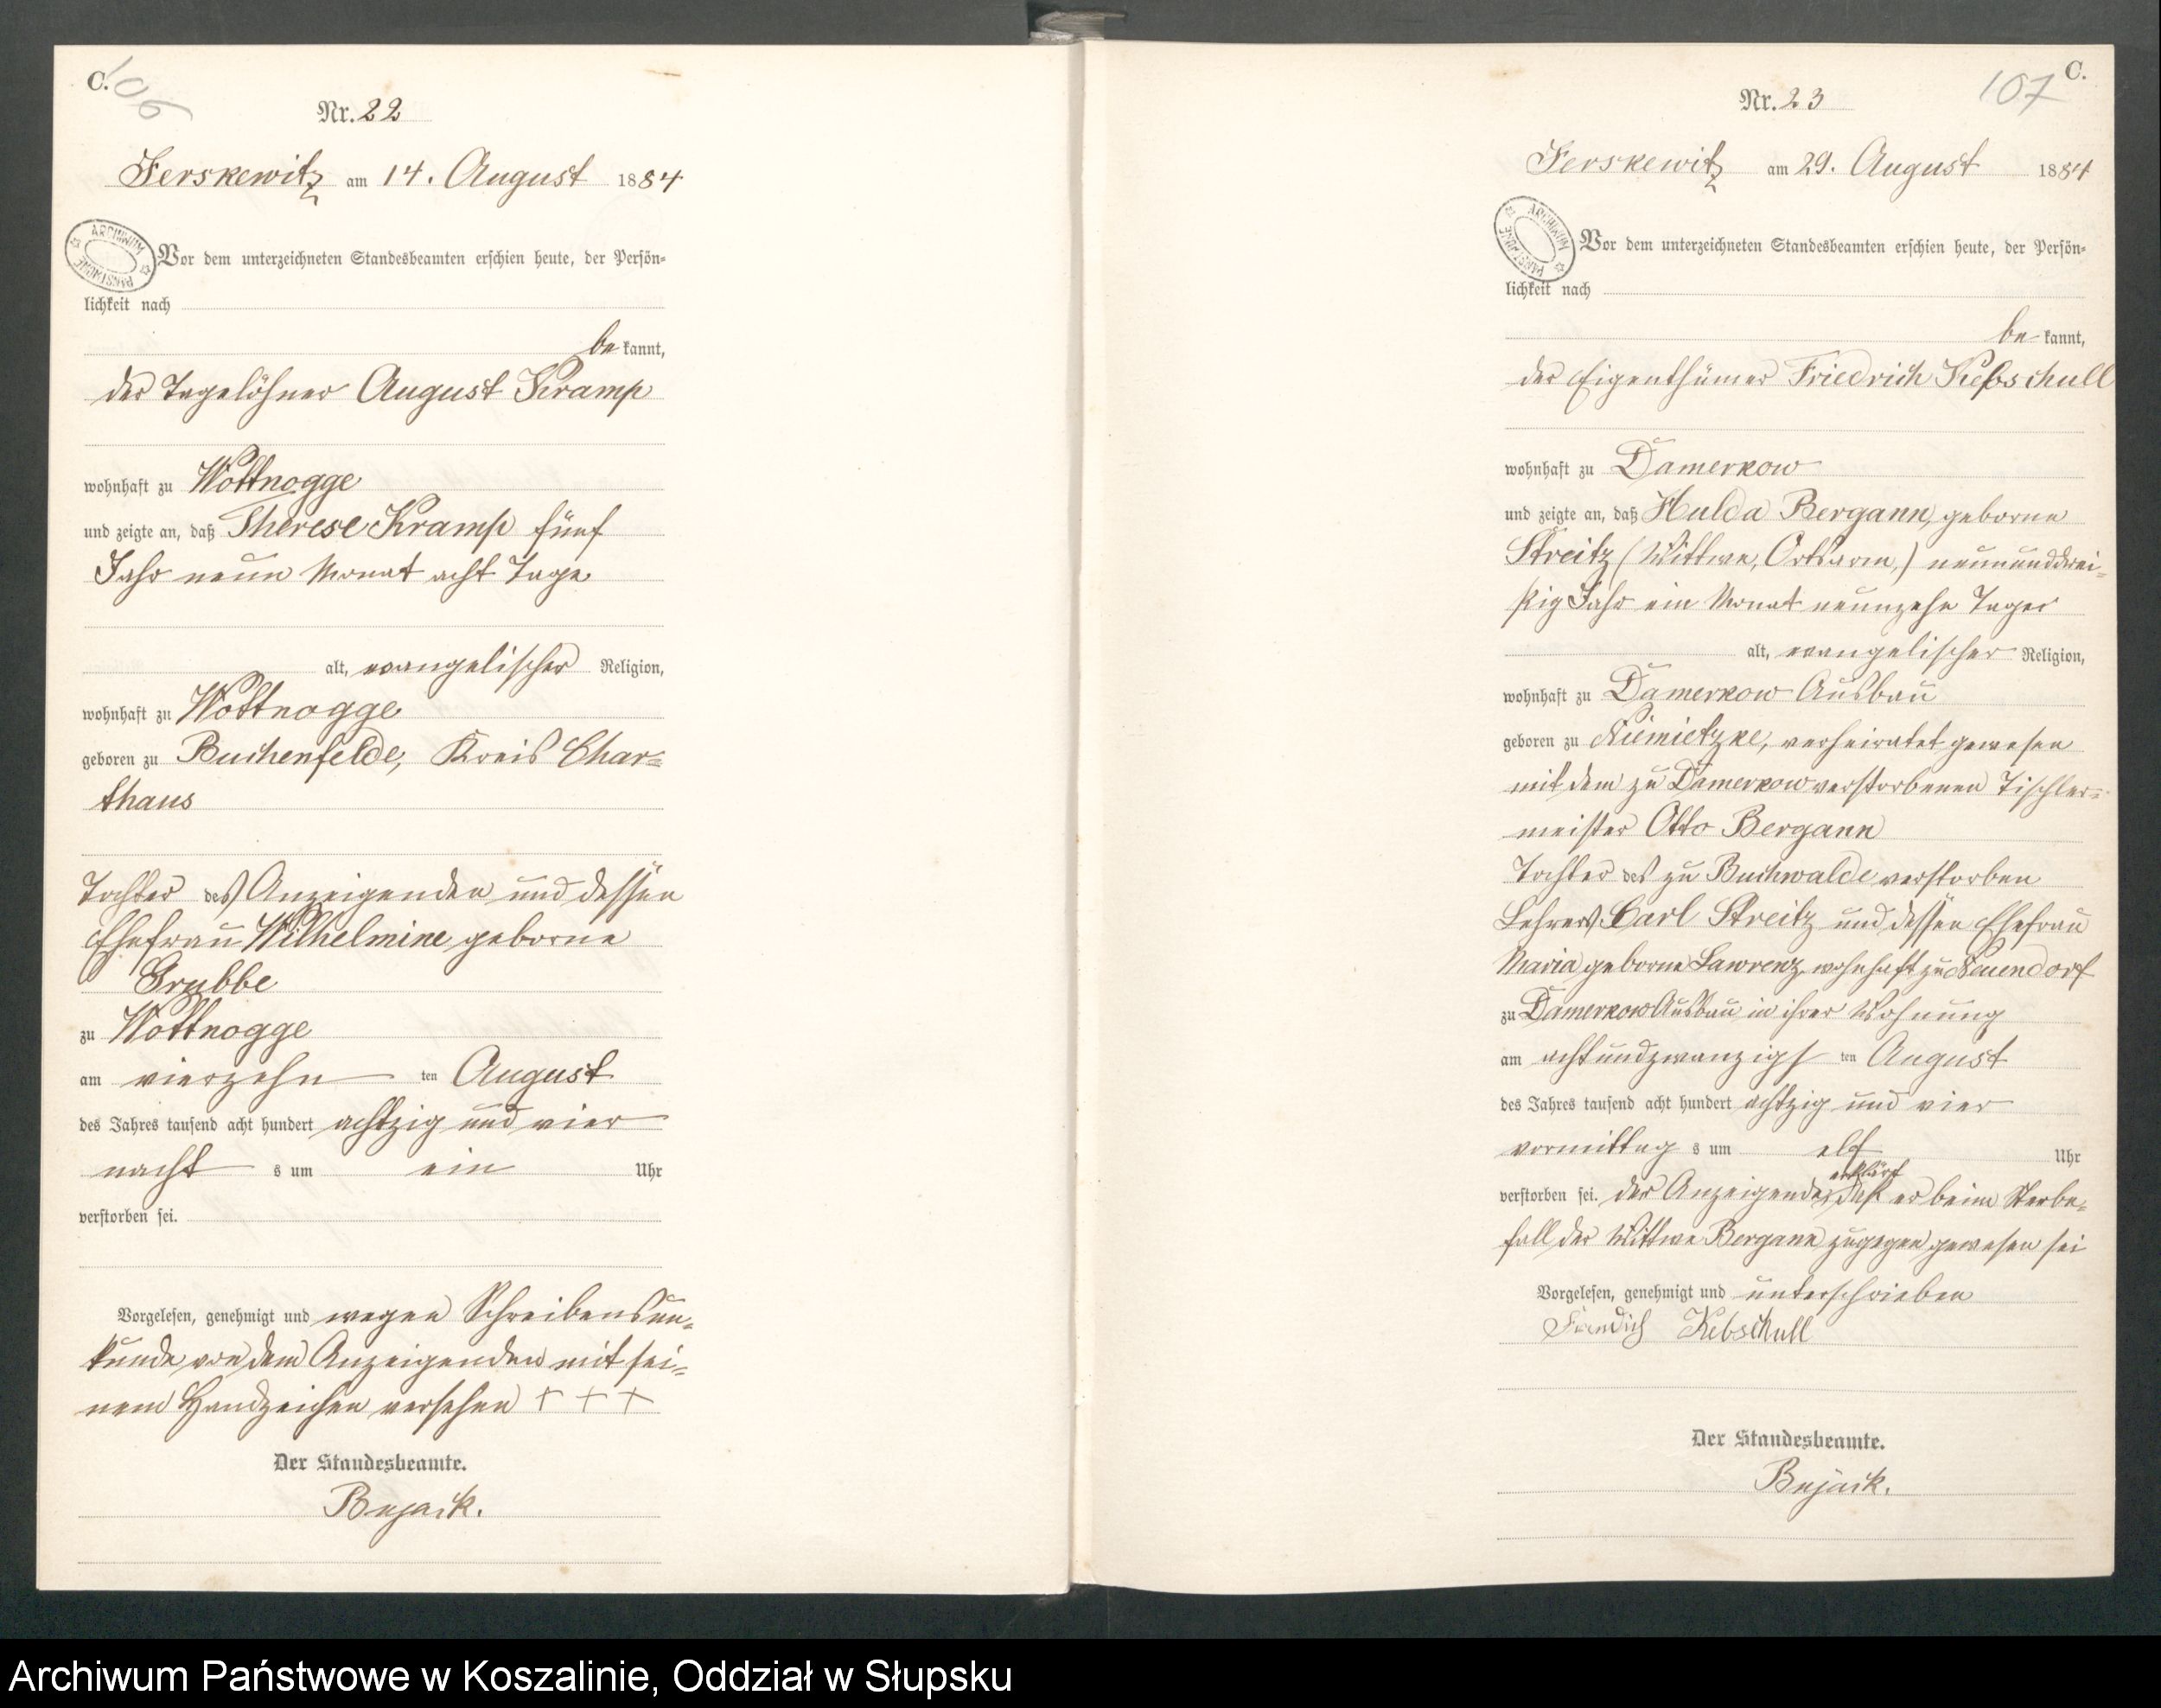 C. 106
Nr. 22
Jerskewitz am 14. August 1884
ARCHIWUM PAŃSTWOWE
Vor dem unterzeichneten Standesbeamten erschien heute, der Persön-
lichkeit nach
be kannt,
der Tagelöhner August Kramp
wohnhaft zu Wottnogge
und zeigte an, daß Therese Kramp fünf
Jahr neun Monat acht Tage
alt, evangelischer Religion,
wohnhaft zu Wottnogge
geboren zu Buchenfelde, Kreis Char-
thaus
Tochter des Anzeigenden und dessen
Ehefrau Wilhelmine geborne
Grubbe
zu Wottnogge
am vierzehn ten August
des Jahres tausend acht hundert achtzig und vier
nacht s um ein Uhr
verstorben sei.
Vorgelesen, genehmigt und wegen Schreibensun-
kunde von dem Anzeigenden mit sei-
nem Handzeichen versehen + + +
Der Standesbeamte.
Bujack.
107 C.
Nr. 23
Jerskewitz am 29. August 1884
ARCHIWUM PAŃSTWOWE
Vor dem unterzeichneten Standesbeamten erschien heute, der Persön-
lichkeit nach
be kannt,
der Eigenthümer Friedrich Kebschull
wohnhaft zu Damerkow
und zeigte an, daß Hulda Bergann, geborne
Streitz (Wittwe, Ortsarm,) neununddrei-
ßig Jahr ein Monat neunzehn Tage
alt, evangelischer Religion,
wohnhaft zu Damerkow Ausbau
geboren zu Niemietzke, verheiratet gewesen
mit dem zu Damerkow verstorbenen Tischler-
meister Otto Bergann
Tochter des zu Buchwalde verstorben
Lehrers Carl Streitz und dessen Ehefrau
Maria geborne Lawrenz, wohnhaft zu Neuendorf
zu Damerkow Ausbau in ihrer Wohnung
am achtundzwanzigs ten August
des Jahres tausend acht hundert achtzig und vier
vormittag s um elf Uhr
erklärt
verstorben sei. der Anzeigende, daß er beim Sterbe-
fall der Wittwe Bergann zugegen gewesen sei
Vorgelesen, genehmigt und unterschrieben
Kebschull
Der Standesbeamte.
Bujack.
Archiwum Państwowe w Koszalinie, Oddział w Słupsku